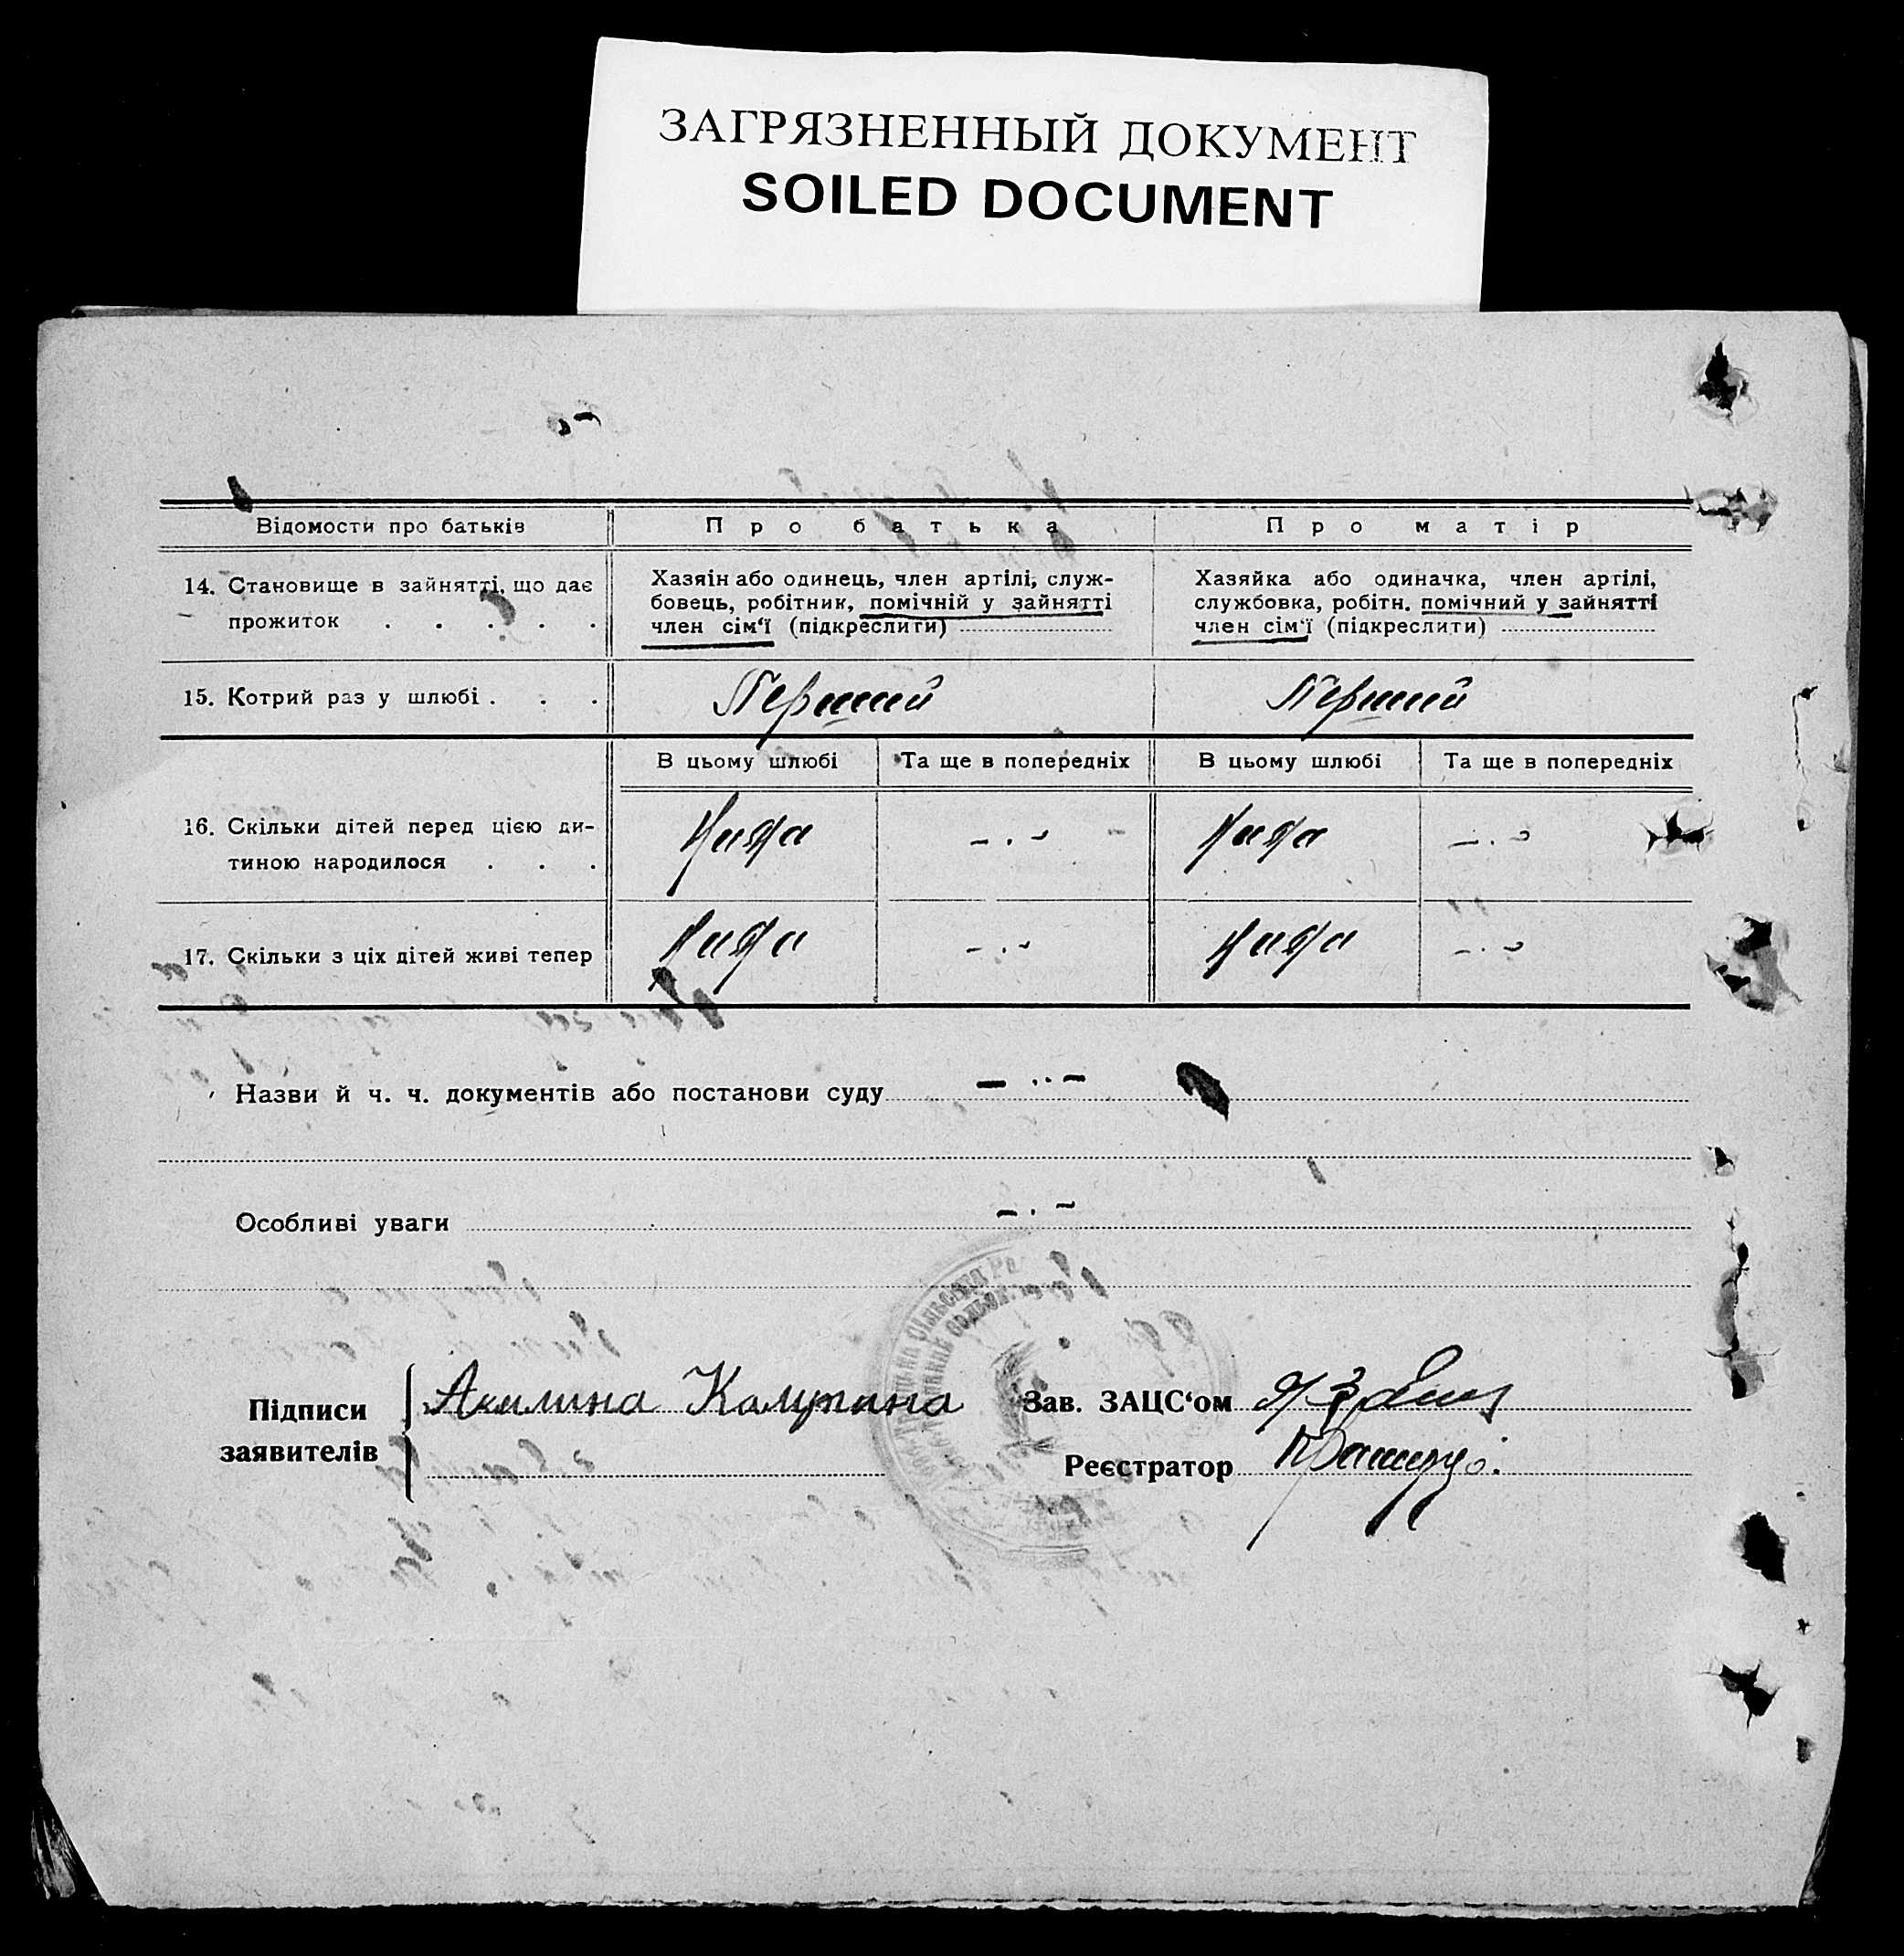 ЗАГРЯЗНЕННЫЙ ДОКУМЕНТ
SOILED DOCUMENT
Відомости про батьків
Про батька
Про матір
14. Становище в зайнятті, що дає
прожиток . . . . .
Хазяїн або одинець, член артілі, служ-
бовець, робітник, помічній у зайнятті
член сім‘ї (підкреслити)
Хазяйка або одиначка, член артілі,
службовка, робітн. помічний у зайнятті
член сім‘ї (підкреслити)
15. Котрий раз у шлюбі . . .
Перший
Перший
В цьому шлюбі
Та ще в попередніх
В цьому шлюбі
Та ще в попередніх
16. Скільки дітей перед цією ди-
тиною народилося . . .
– . –
– . –
17. Скільки з ціх дітей живі тепер
– . –
– . –
Назви й ч. ч. документів або постанови суду – .. –
Особливі уваги – . –
Підписи
заявителів
Акилина
Зав. ЗАЦС‘ом
Реєстратор